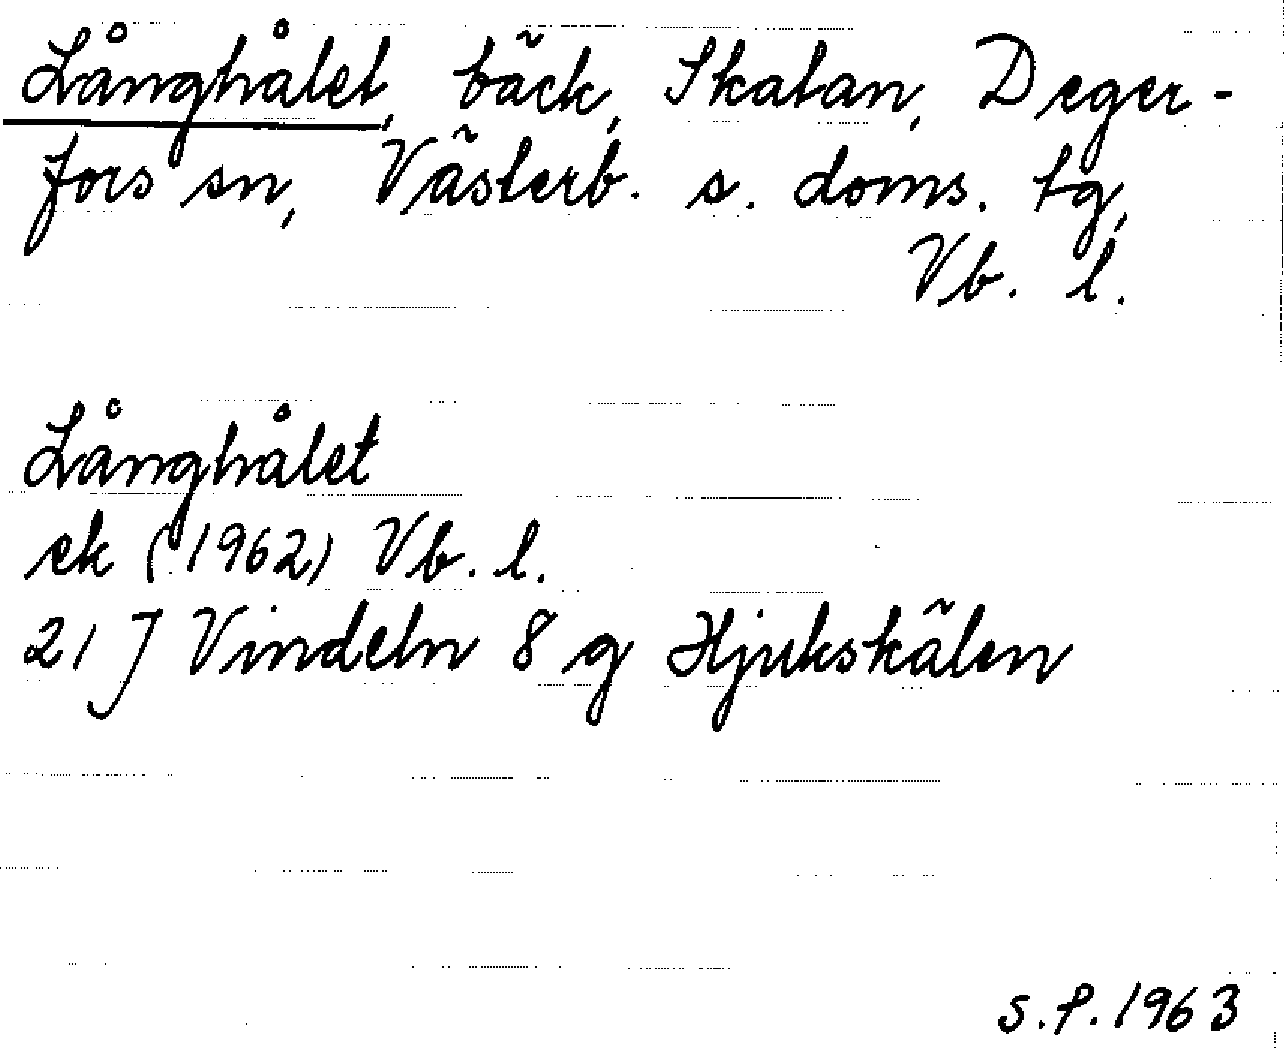 Långhålet, bäck, Skatan, Deger-
fors sn, Västerb. s. doms. tg,
Vb. l.
Långhålet
ek (1962) Vb. l.
21 J Vindeln 8 g Hjuksskälen
S.P. 1963